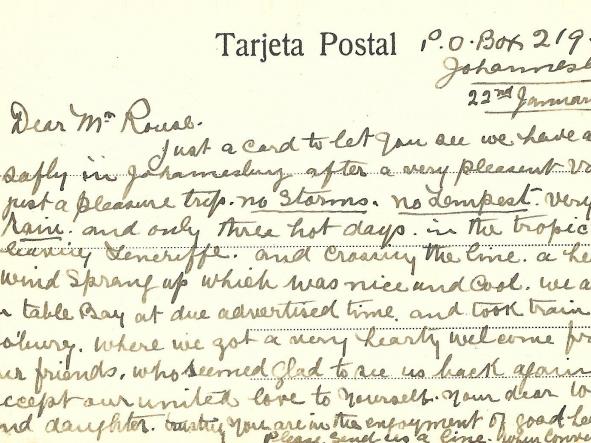 Tarjeta Postal
P.O. Box 219.
Johannesb
22nd Januar
Dear Mrs Rouse.
Just a card to let you see we have a
safly in Johannesburg after a very pleasent Vo
just a pleasure trip. no Storms. no tempest. very
Rain. and only three hot days. in the tropic
leaving Teneriffe. and Crossing the line. a he
wind Sprang up which was nice and Cool. we a
n table Bay at due advertised time. and took train
o'burg. where we got a very hearty welcome fr
ur friends. who seemed Glad to see us back again
ccept our united love to yourself. your dear
nd daughter. trusting you are in the enjoyment of good hea
Please send us a line. when conve